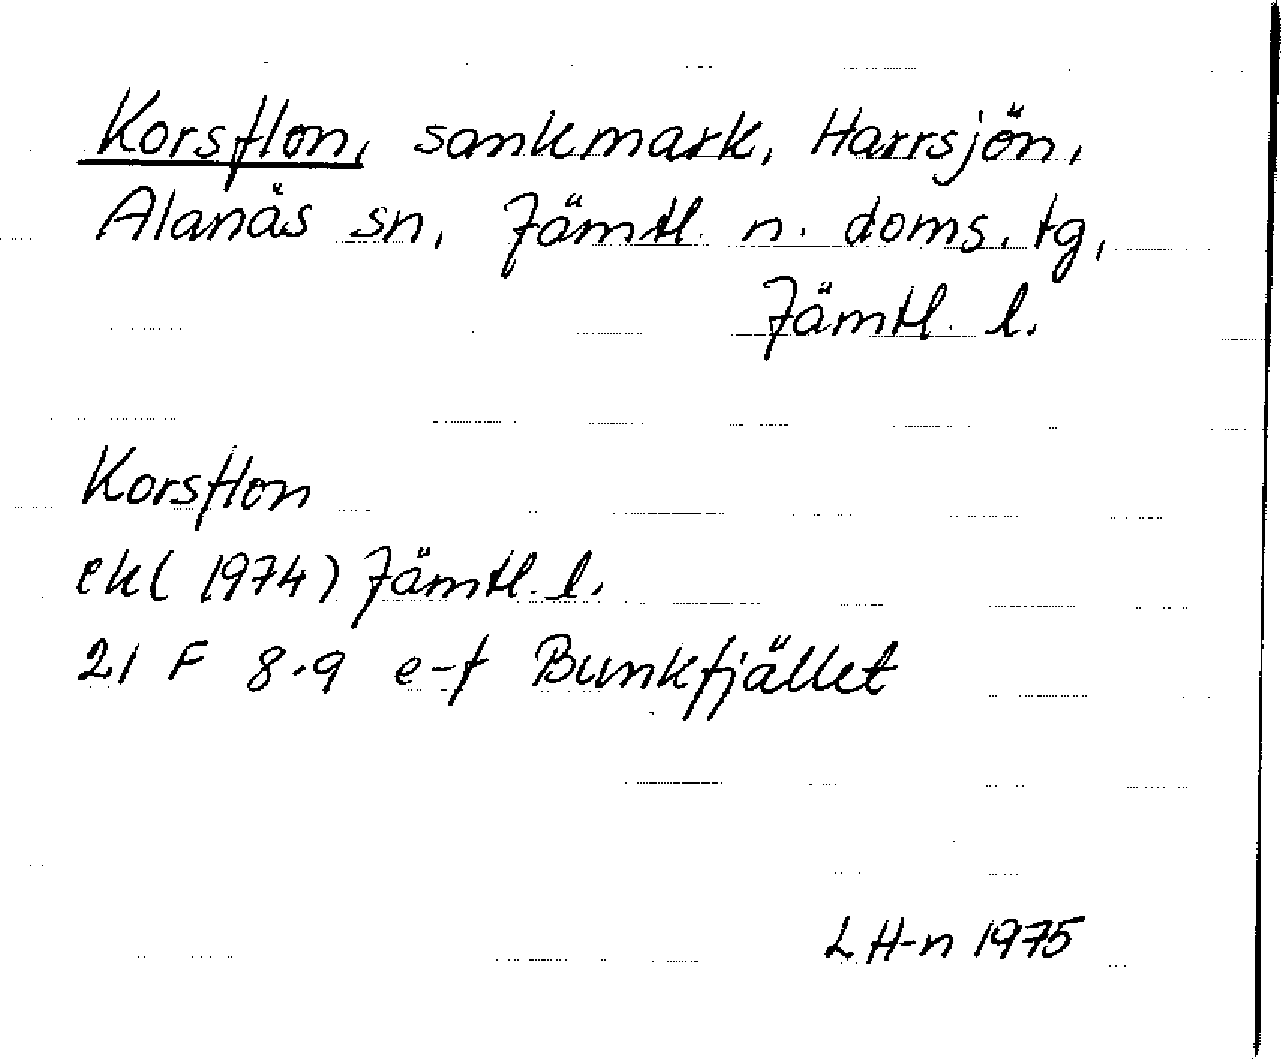 Korsflon, sankmark, Harrsjön,
Alanäs sn, Jämtl. n. doms. tg,
Jämtl. l.
Korsflon
ekl (1974) Jämtl. l.
21 F 8-9 e-f Bunkfjället
L H-n 1975